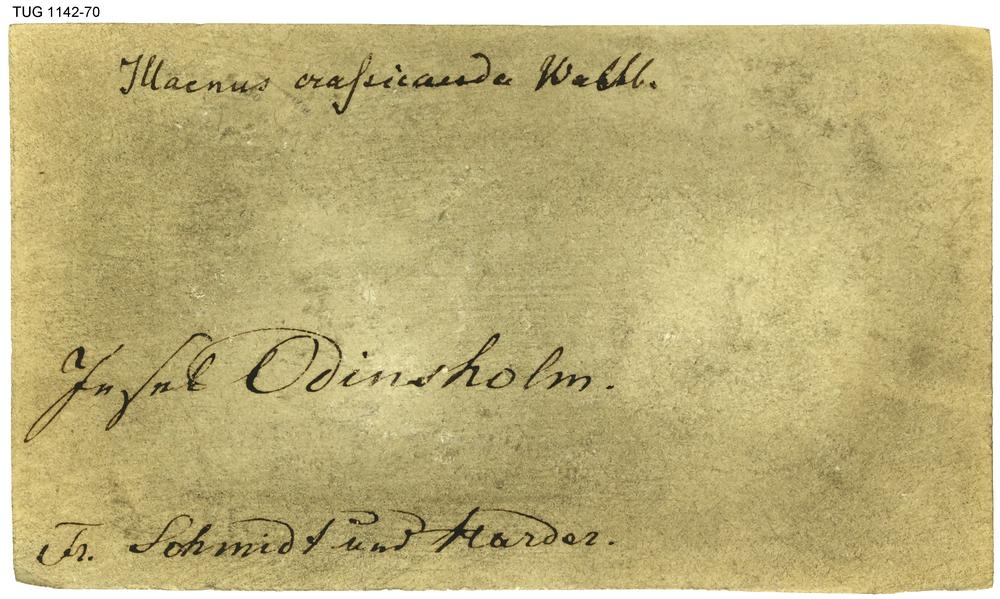 TUG 1142-70
Illaenus craſsicauda Wahlb.
Insel Odinsholm.
Fr. Schmidt und Harder.